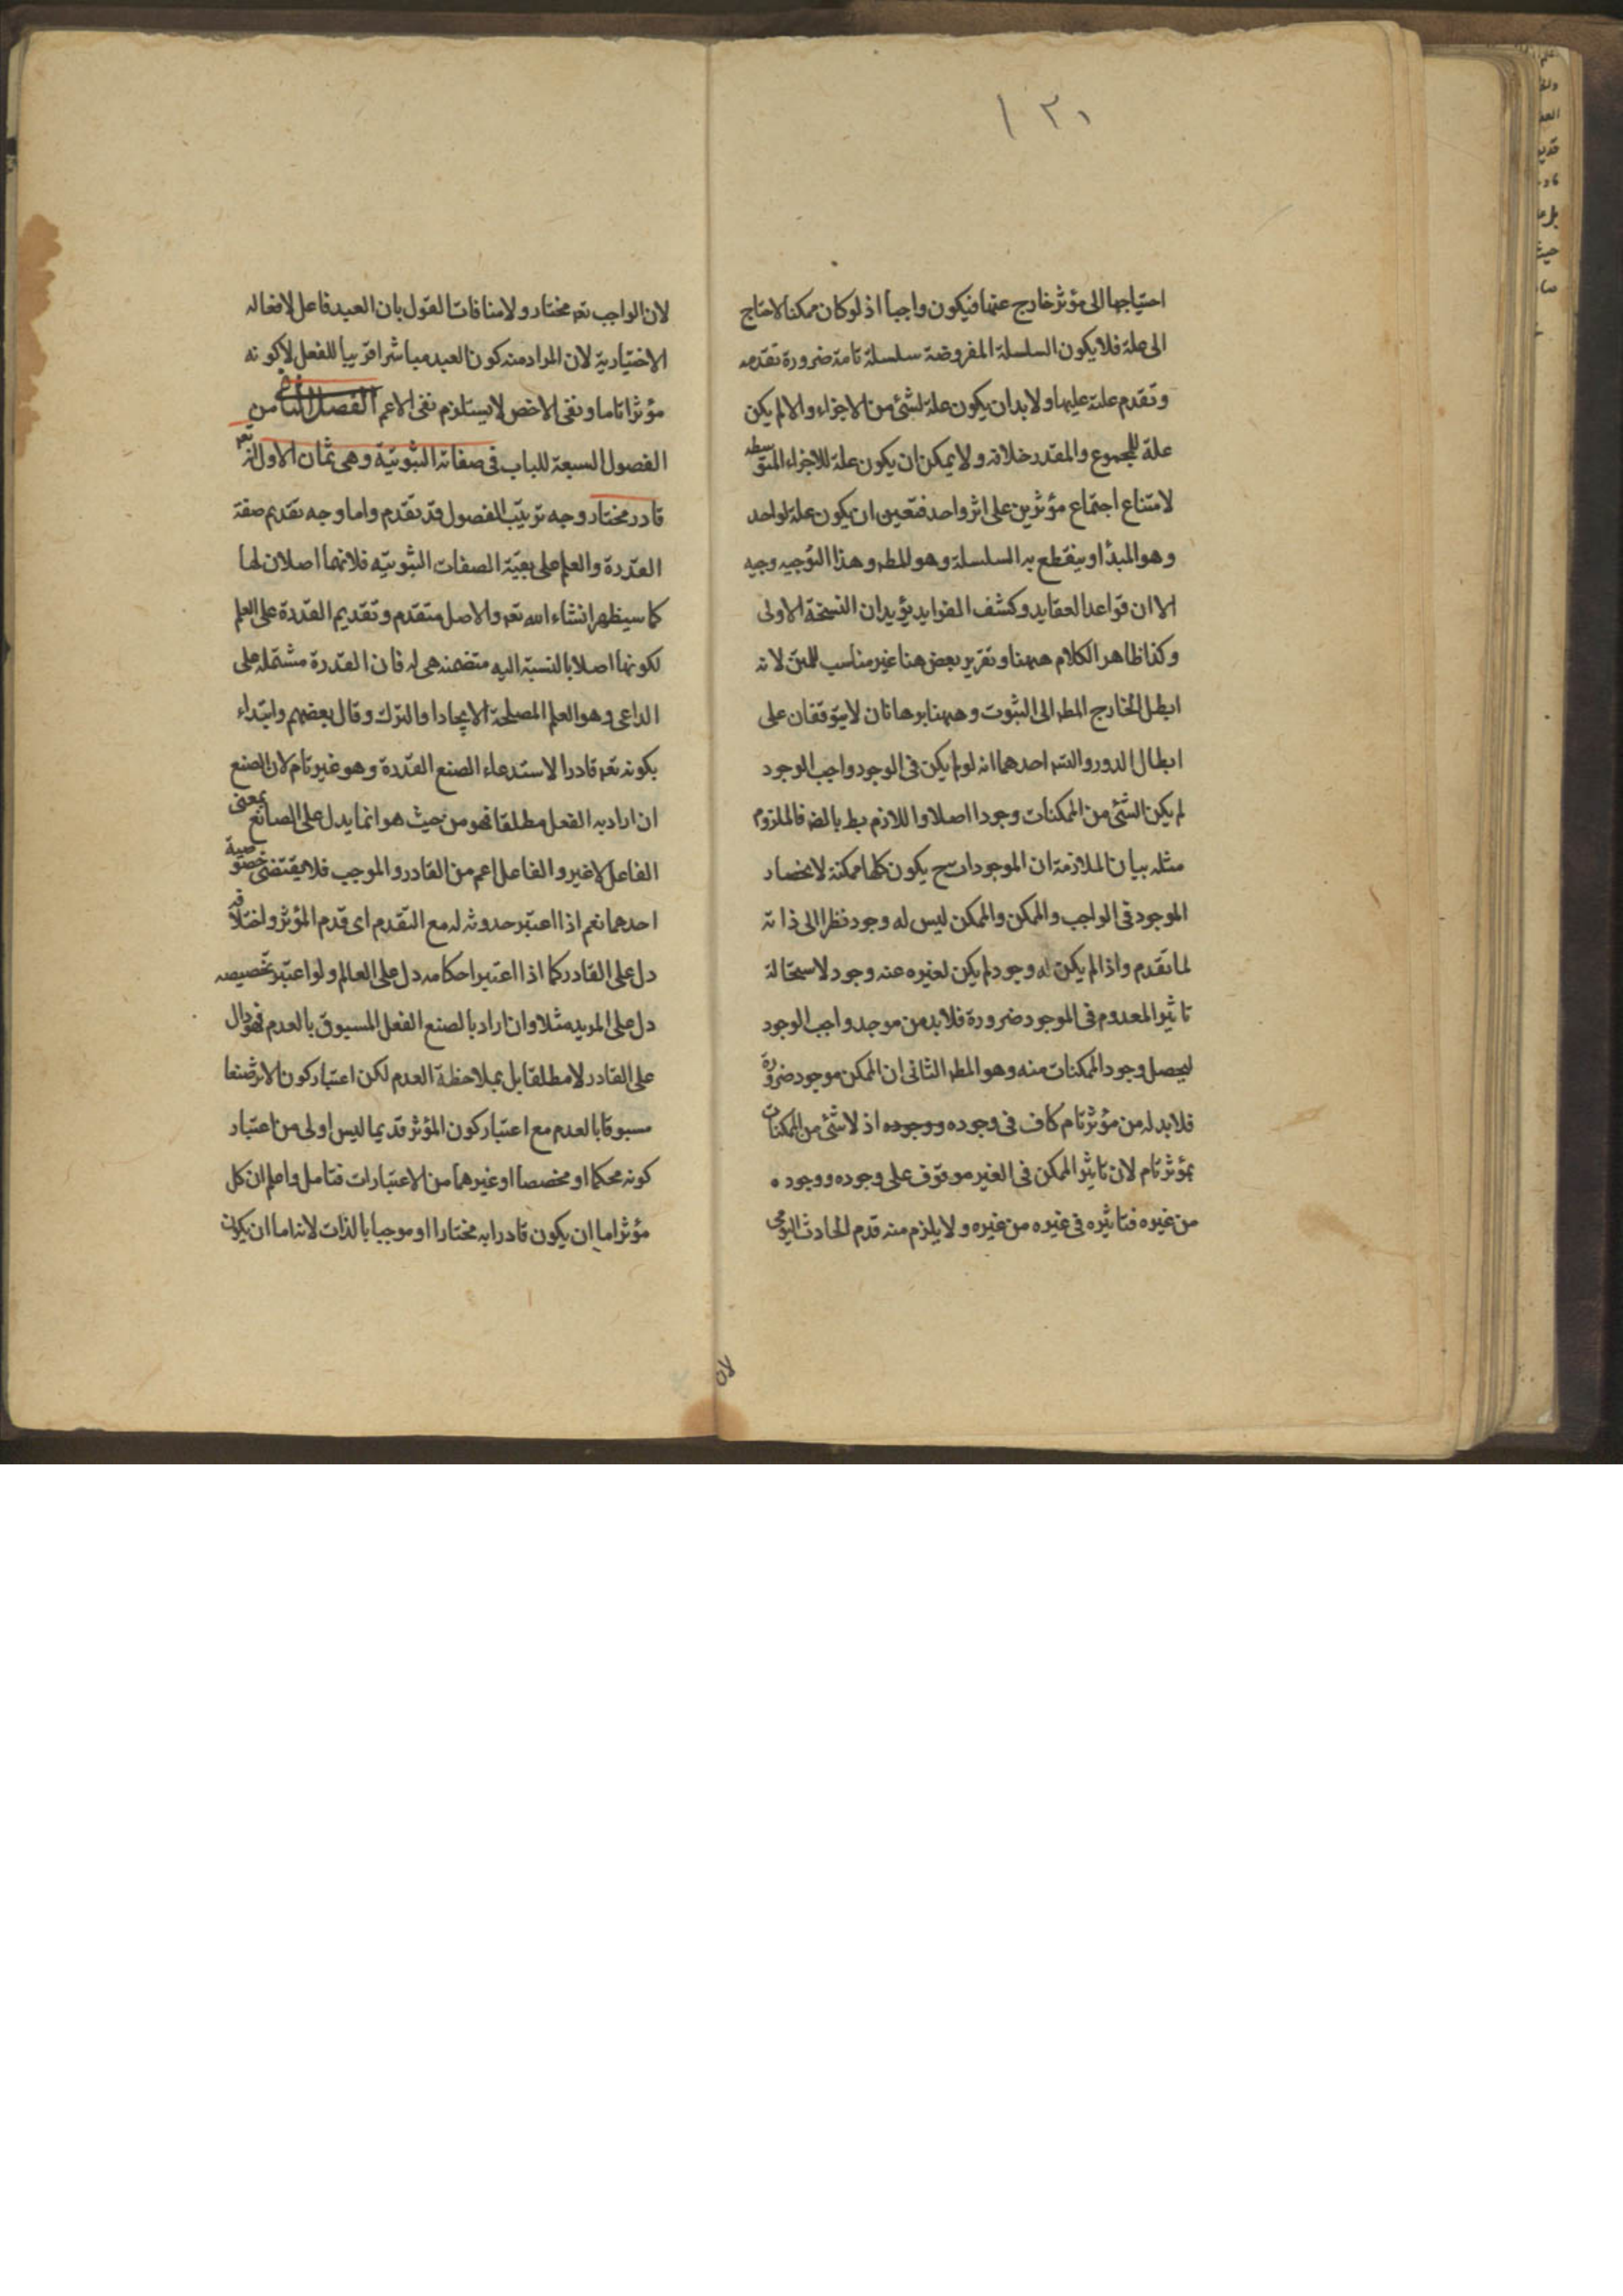 ١٣١
احتياجها الى مؤثر خارج عنها فيكون واجبا اذ لو كان ممكنا لاحتاج
الى علة فلا يكون السلسلة المفروضة سلسلة تامة ضرورة تقدمه
وتقدم علته عليها ولا بد ان يكون علة لشئ من الاجزاء والا لم يكن
علة للمجموع والمقدر خلافه ولا يمكن ان يكون علة للاجزاء المتوسطه
لامتناع اجتماع مؤثرين على اثر واحد فتعين ان يكون علة لواحد
وهو المبدأ وينقطع به السلسلة وهو المط وهذا التوجيه وجيه
الا ان قواعد العقايد وكشف الفوايد يؤيد ان النسخة الاولى
وكذا ظاهر الكلام ههنا وتقرير بعض هنا غير مناسب للمتن لانه
ابطل الخارج المط الى الثبوت وههنا برهانان لا يتوقفان على
ابطال الدور والتس احدهما انه لو لم يكن فى الوجود واجب الوجود
لم يكن الشئ من الممكنات وجودا اصلا واللازم بط بالضر فالملزوم
مثله بيان الملازمة ان الموجودات ح يكون كلها ممكنة لانحصار
الموجود فى الواجب والممكن والممكن ليس له وجود نظرا الى ذاته
لما تقدم واذا لم يكن له وجود لم يكن لغيره عنه وجود لاستحالة
تاثير المعدوم فى الموجود ضرورة فلا بد من موجد واجب الوجود
ليحصل وجود الممكنات منه وهو المط الثانى ان الممكن موجود ضرورة
فلا بد له من مؤثر تام كاف فى وجوده ووجوده اذ لا شئ من الممكنات
بمؤثر تام لان تاثير الممكن فى الغير موقوف على وجوده ووجوده
من غيره فتاثيره فى غيره من غيره ولا يلزم منه قدم الحادث اليومى
لان الواجب تعه مختار ولا منافات القول بان العبد فاعل لافعاله
الاختيارية لان المراد منه كون العبد مباشرا قريبا للفعل لا كونه
مؤثرا تاما ونفى الاخص لا يستلزم نفى الاعم الفصل الثانى من
الفصول السبعة للباب فى صفاته الثبوتية وهى ثمان الاول انه تعه
قادر مختار وجه ترتيب الفصول قد تقدم واما وجه تقديم صفة
القدرة والعلم على بقية الصفات الثبوتيه فلانهما اصلان لها
كما سيظهر انشاء الله تعه والاصل متقدم وتقديم القدرة على العلم
لكونها اصلا بالنسبة اليه متضمنه هى له فان القدرة مشتمله على
الداعى وهو العلم المصلحة الايجاد او الترك وقال بعضهم وابتداء
بكونه تعه قادرا لاستدعاء الصنع القدرة وهو غير تام لان الصنع
ان اراد به الفعل مطلقا فهو من حيث هو انما يدل على الصانع بمعنى
الفاعل لا غير والفاعل اعم من القادر والموجب فلا يقتضى خصوصية
احدهما نعم اذا اعتبر حدوثه له مع التقدم اى قدم المؤثر واختلافه
دل على القادر كما اذا اعتبر احكامه دل على العالم ولو اعتبر تخصيصه
دل على المريد مثلا وان اراد بالصنع الفعل المسبوق بالعدم فهو دال
على القادر لا مطلقا بل بملاحظة العدم لكن اعتبار كون الاثر صنعا
مسبوقا بالعدم مع اعتبار كون المؤثر قديما ليس اولى من اعتبار
كونه محكما او مخصصا او غيرهما من الاعتبارات فتامل واعلم ان كل
مؤثر اما ان يكون قادرا به مختارا او موجبا بالذات لانه اما ان يكون